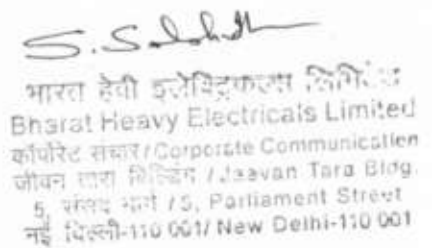 भारत हेवी इलेक्ट्रिकल्स
Bharat Heavy Electricals Limited
कॉर्पोरेट संचार / Corporate Communication
जीवन तारा बिल्डिंग / Jeevan Tara Bldg.
5, संसद मार्ग / 5, Parliament Street
नई दिल्ली-110 001/ New Delhi-110 001